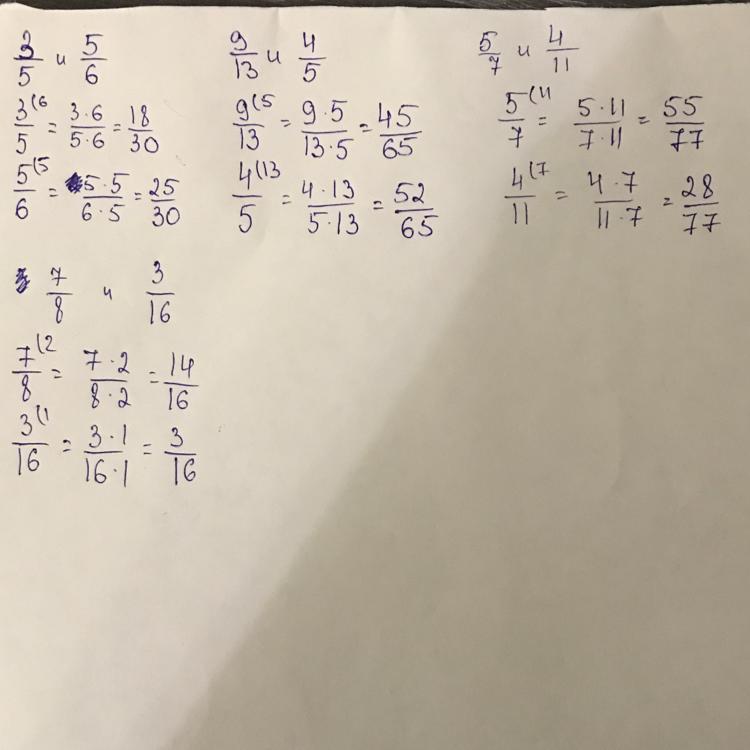 3/5 и 5/6
3(6/5 = 3·6/5·6 = 18/30
5(5/6 = 5·5/6·5 = 25/30
9/13 и 4/5
9(5/13 = 9·5/13·5 = 45/65
4(13/5 = 4·13/5·13 = 52/65
5/7 и 4/11
5(11/7 = 5·11/7·11 = 55/77
4(7/11 = 4·7/11·7 = 28/77
7/8 и 3/16
7(2/8 = 7·2/8·2 = 14/16
3(1/16 = 3·1/16·1 = 3/16